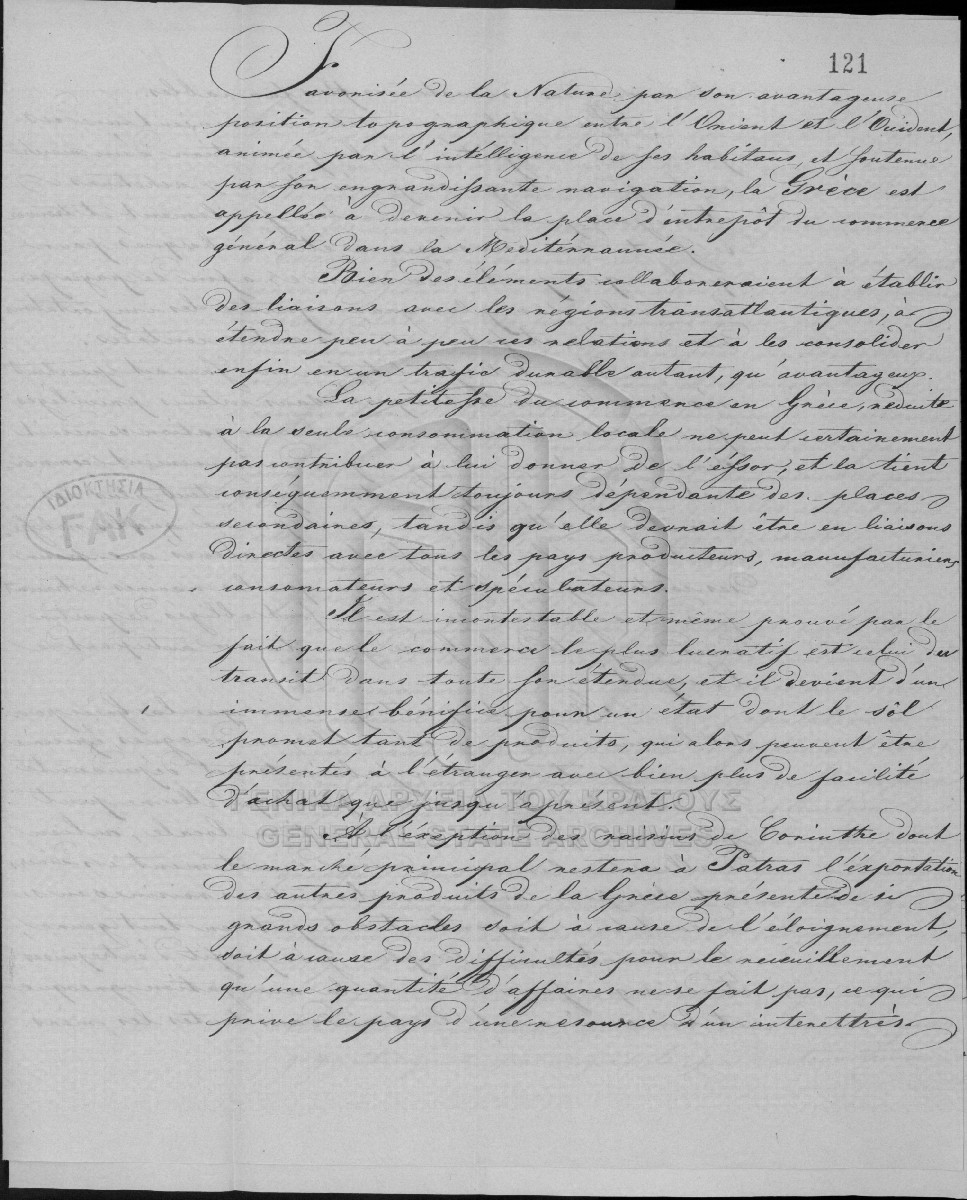 121
Favorisée de la Nature par son avantageuse
position topographique entre l'Orient et l'Occident,
animée par l'intélligence de ses habitans, et soutenue
par son engrandissante navigation, la Grèce est
appellée à devenir la place d'intrepôt du commerce
général dans la Meditérrannée.
Bien des éléments collaboreraient à établir
des liaisons avec les régions transatlantiques, à
étendre peu à peu ces relations et à les consolider
enfin en un trafic durable autant, qu'avantageux.
La petitesse du commerce en Grèce, réduite
à la seule consommation locale ne peut certainement
pas contribuer à lui donner de l'éssor, et la tient
conséquemment toujours dépendante des places
secondaires, tandis qu'elle devrait être en liaisons
directes avec tous les pays producteurs, manufacturiers,
consomateurs et spéculateurs.
Il est incontestable et même prouvé par le
fait que le commerce le plus lucratif est celui du
transit dans toute son étendue, et il devient d'un
immense bénifice pour un état dont le sôl
promet tant de produits, qui alors peuvent être
présentés à l'étranger avec bien plus de facilité
d'achat que jusqu'à présent.
A l'éxéption des raisins de Corinthe dont
le marché principal restera à Patras l'éxportation
des autres produits de la Grèce présente de si
grands obstacles soit à cause de l'éloignement,
soit à cause des difficultés pour le receuillement
qu'une quantité d'affaires ne se fait pas, ce qui
prive le pays d'une resource d'un interet très
ΙΔΙΟΚΤΗΣΙΑ
ΓΑΚ
ΓΕΝΙΚΑ ΑΡΧΕΙΑ ΤΟΥ ΚΡΑΤΟΥΣ
GENERAL STATE ARCHIVES